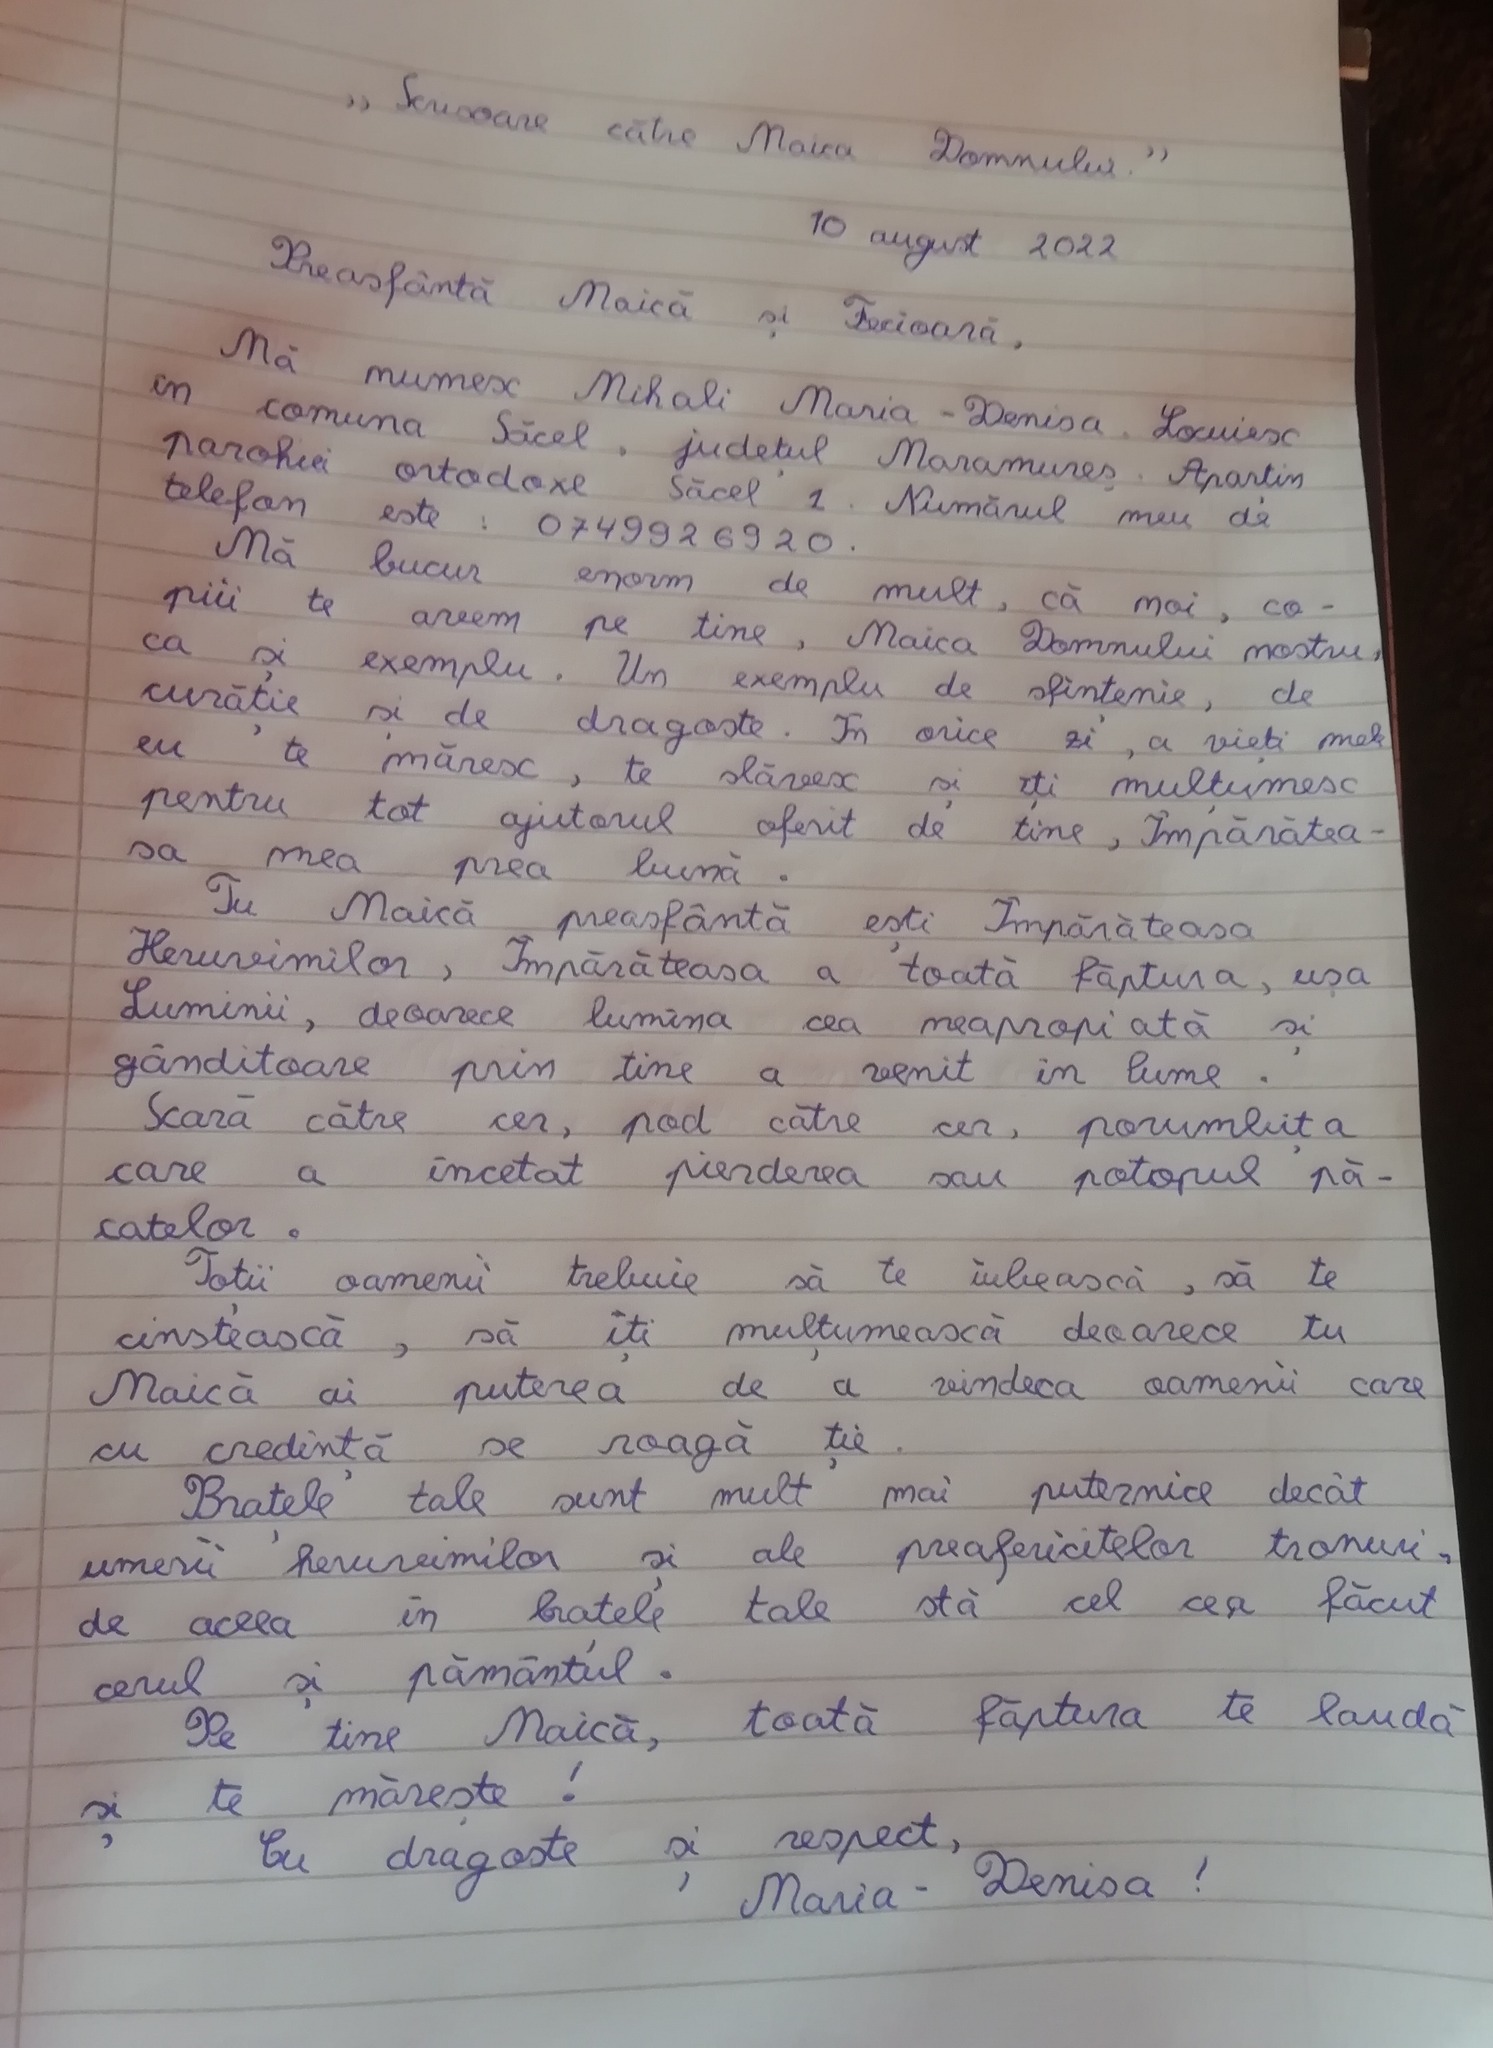 ,, Scrisoare către Maica Domnului."
10 august 2022
Preasfântă Maică și Fecioară,
Mă numesc Mihali Maria-Denisa. Locuiesc
in comuna Săcel, județul Maramureș. Aparțin
parohiei ortodoxe Săcel 1. Numărul meu de
telefon este: 0749926920.
Mă bucur enorm de mult, că noi, co-
piii te avem pe tine, Maica Domnului nostru,
ca și exemplu. Un exemplu de sfințenie, de
curăție și de dragoste. În orice zi, a vieți mele
eu te măresc, te slăvesc și îți mulțumesc
pentru tot ajutorul oferit de tine, Împărătea-
sa mea prea bună.
Tu Maică preasfântă ești Împărăteasa
Heruvimilor, Împărăteasa a toată făptura, ușa
Luminii, deoarece lumina cea neapropiată și
gânditoare prin tine a venit in lume.
Scară către cer, pod către cer, porumbița
care a încetat pierderea sau potopul pă-
catelor.
Toții oamenii trebuie să te iubească, să te
cinstească, să îți mulțumească deoarece tu
Maică ai puterea de a vindeca oamenii care
cu credință se roagă ție.
Brațele tale sunt mult mai puternice decât
umerii heruvimilor și ale preafericitelor tronuri,
de aceea în brațele tale stă cel cea făcut
cerul și pământul.
Pe tine Maică, toată făptura te laudă
și te mărește!
Cu dragoste și respect,
Maria-Denisa!